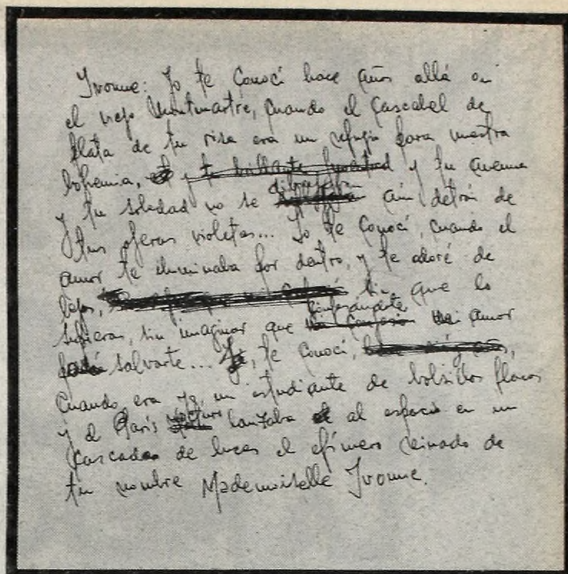 Ivonne: Yo te conocí hace años allá en
el viejo Montmartre, cuando el cascabel de
plata de tu risa era un refugio para nuestra
bohemia, y tu
y tu soledad no se aún detrás de
tus ojeras violetas... Yo te conocí, cuando el
amor te iluminaba por dentro, y te adoré de
lejos, sin que lo
supieras, sin imaginar que mi amor
salvarte... Yo, te conocí,
cuando era yo, un estudiante de bolsillos flacos
y el París nocturno lanzaba al espacio en un
cascada de luces el efímero reinado de
tu nombre Mademoiselle Ivonne.